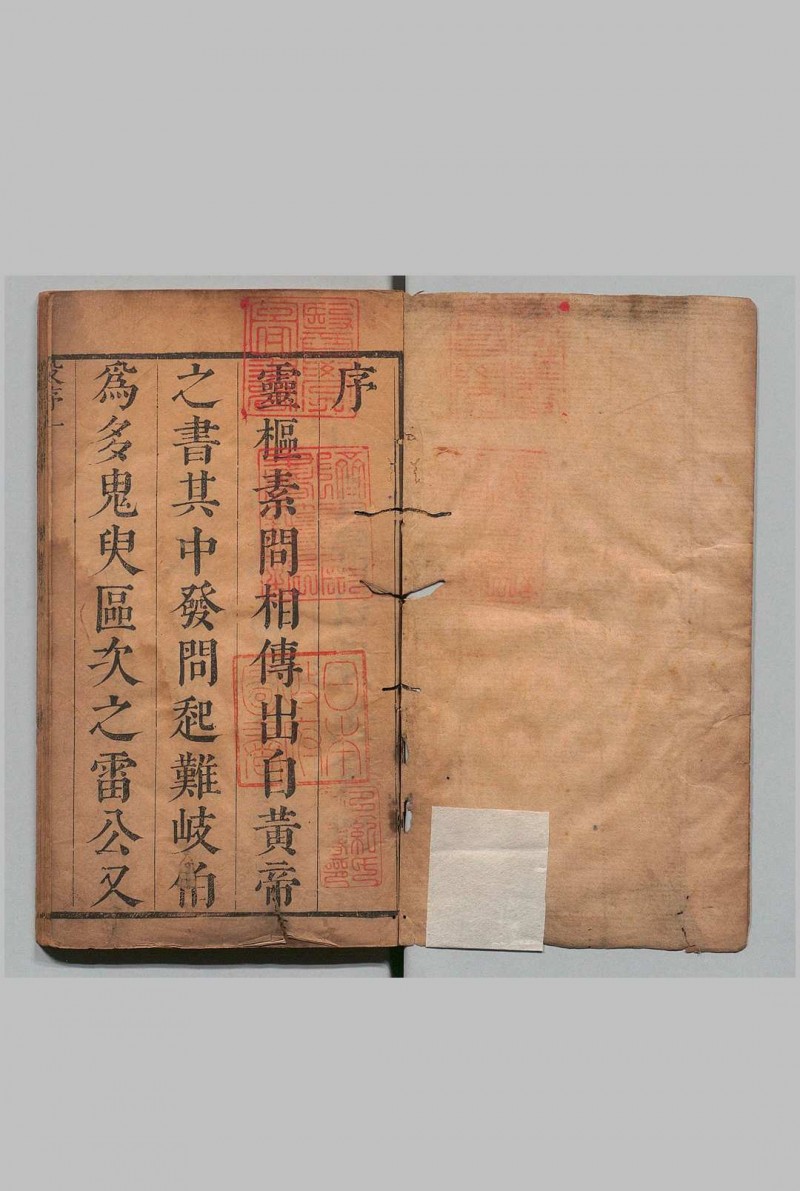 序
靈樞素問相傳出自黃帝
之書其中發問起難岐伯
為多鬼臾區次之雷公又